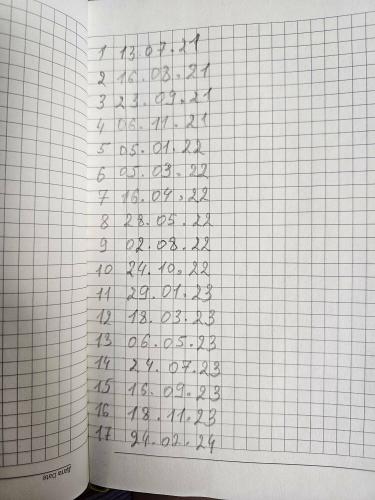 1 13.07.21
2 16.08.21
3 23.09.21
4 06.11.21
5 05.01.22
6 05.03.22
7 16.04.22
8 28.05.22
9 02.08.22
10 24.10.22
11 29.01.23
12 18.03.23
13 06.05.23
14 24.07.23
15 16.09.23
16 18.11.23
17 24.02.24
Дата Date